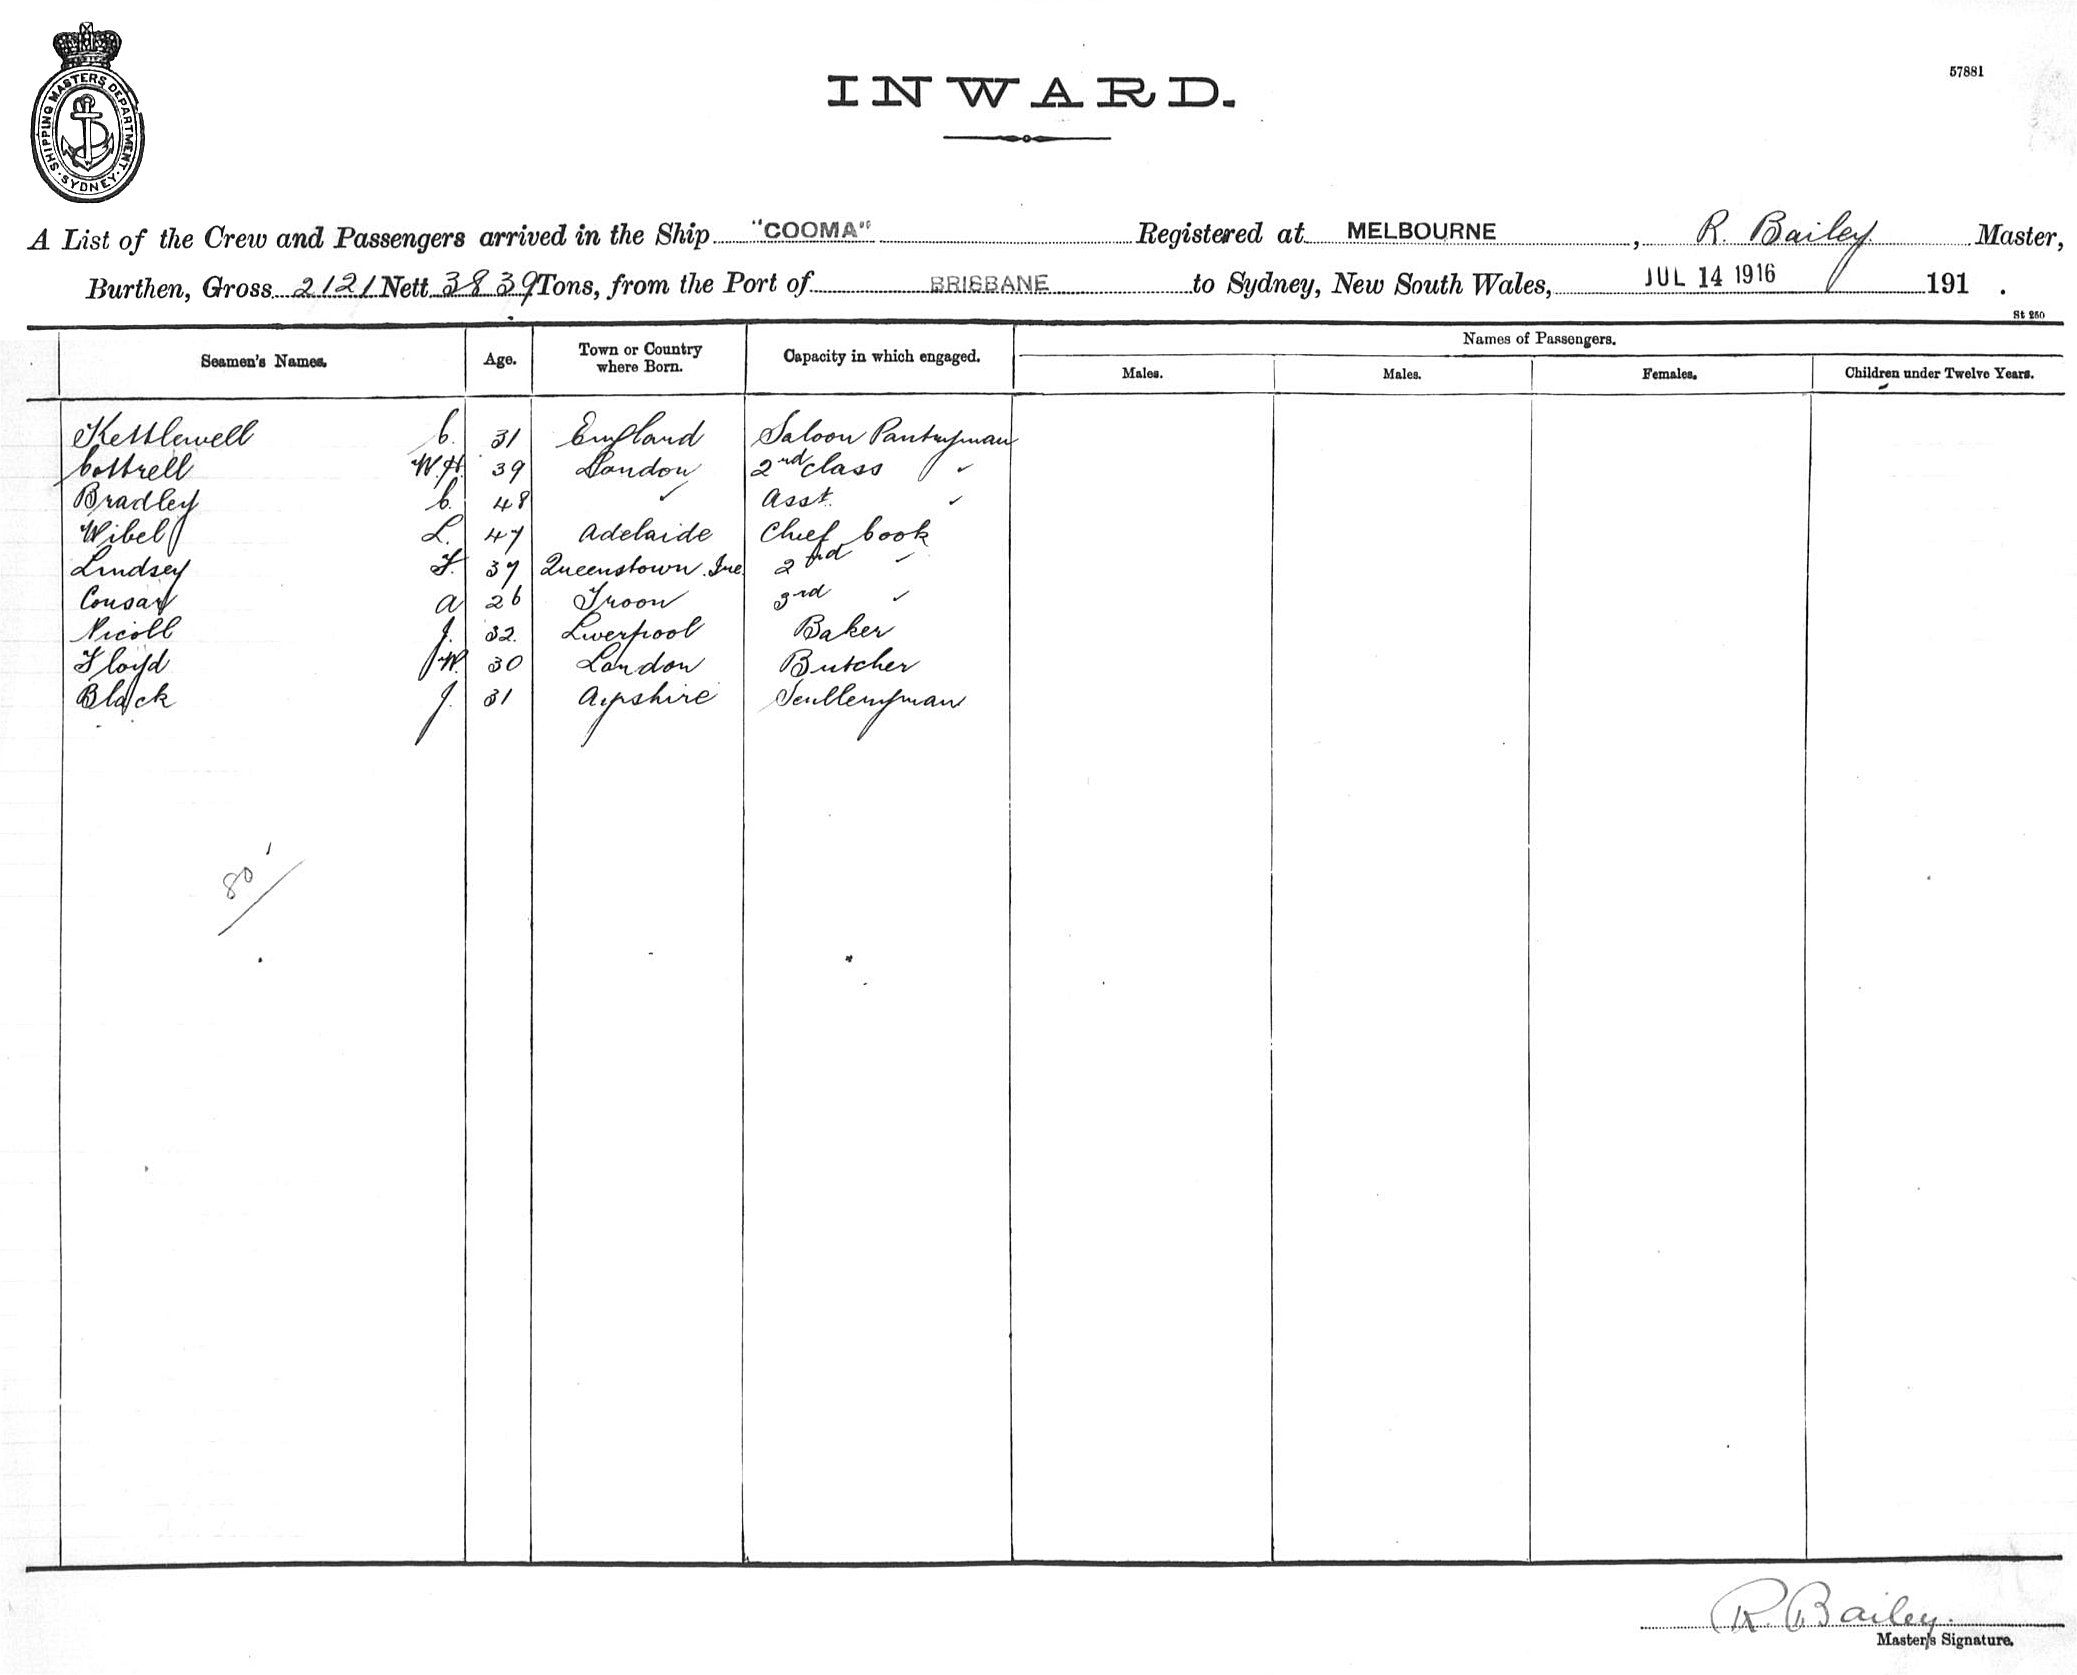 SHIPPING MASTERS DEPARTMENT. SYDNEY.
57881
INWARD.
A List of the Crew and Passengers arrived in the Ship "COOMA" Registered at MELBOURNE, R. Bailey Master,
Burthen, Gross 2121 Nett 3839 Tons, from the Port of BRISBANE to Sydney, New South Wales, JUL 14 1916 191 .
St 250
Seamen's Names. Age. Town or Country where Born. Capacity in which engaged. Names of Passengers.
Males. Males. Females. Children under Twelve Years.
Kettlewell C. 31 England Saloon Pantryman
Cottrell W.H. 39 London 2nd class "
Bradley C. 48 " Asst. "
Wibel L. 47 Adelaide Chief Cook
Lindsey F. 37 Queenstown. Ire. 2nd "
Cousar A 26 Troon 3rd "
Nicoll J. 32. Liverpool Baker
Floyd W. 30 London Butcher
Black J. 31 Ayrshire Sculleryman
80
R. Bailey.
Master's Signature.